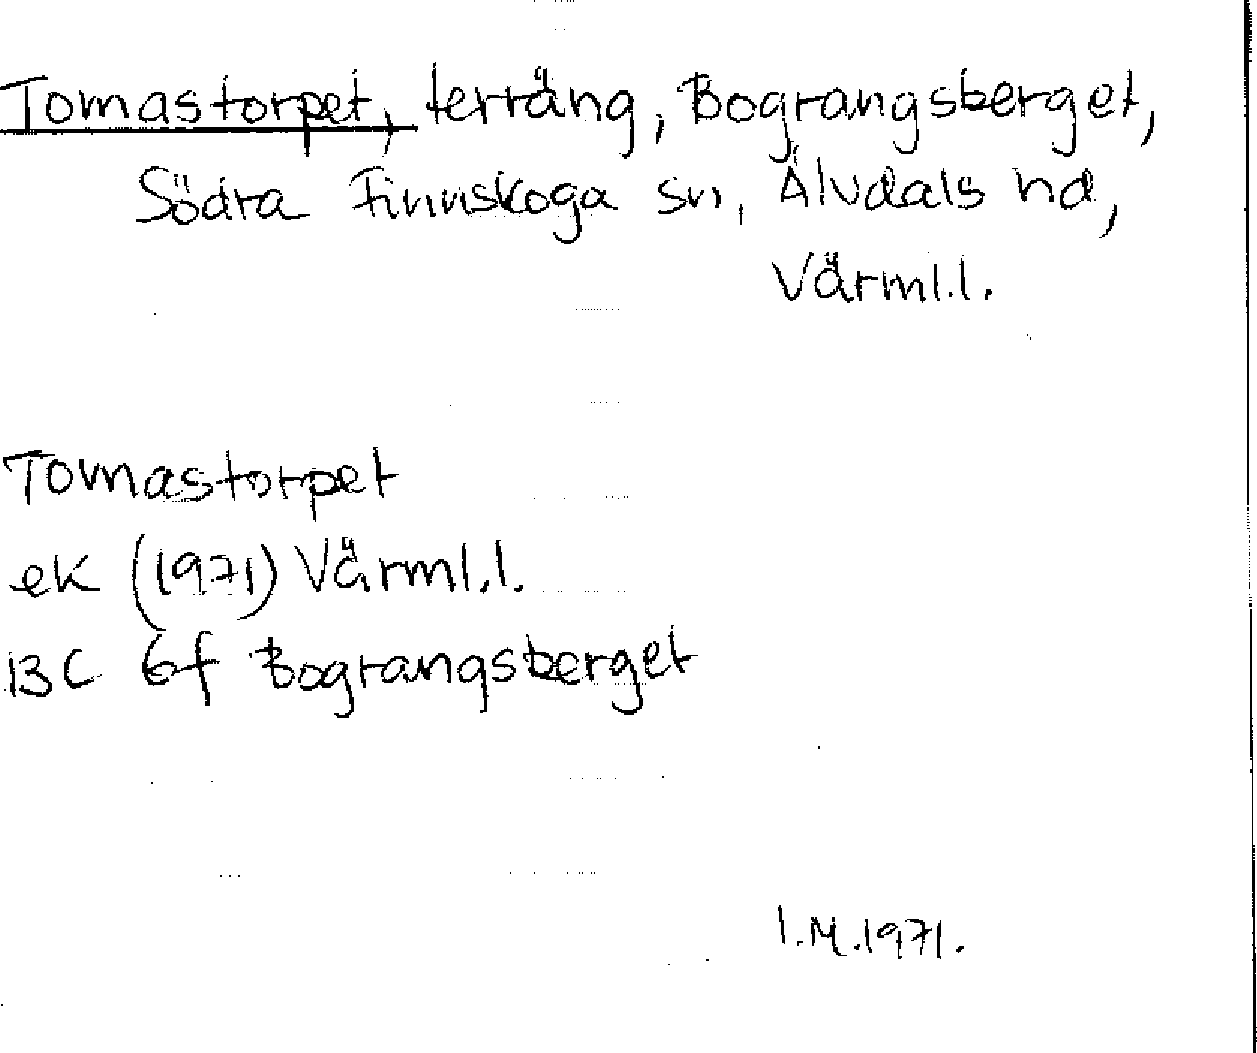 Tomastorpet, terräng, Bograngsberget,
Södra Finnskoga sn, Älvdals hd,
Värml.l.
Tomastorpet
ek (1971) Värml.l.
13C 6f Bograngsberget
I.M.1971.